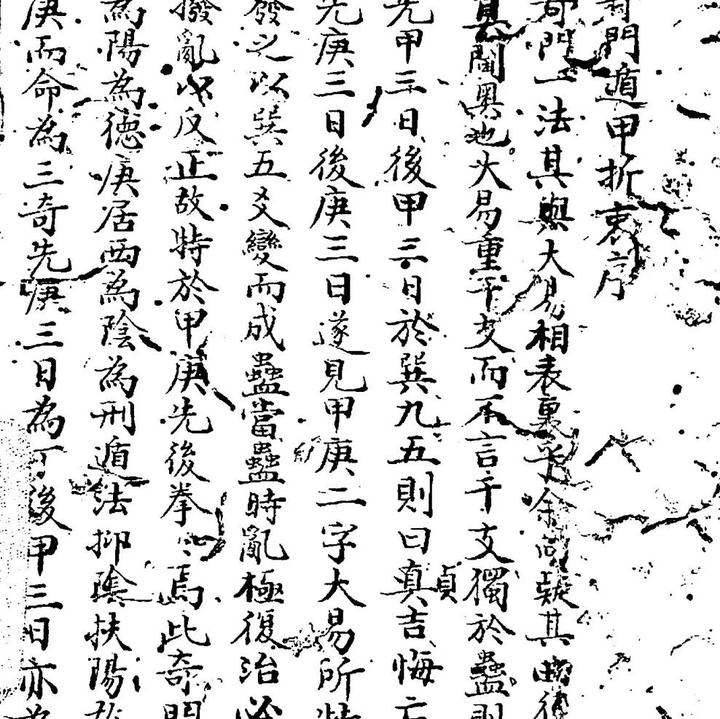 奇門遁甲折衷序
奇門一法其與大易相表裏乎余向疑其曲
其閫奧也大易重干支而不言干支獨於蠱則
先甲三日後甲三日於巽九五則曰真吉悔亡
貞
先庚三日後庚三日遂見甲庚二字大易所特
發之以巽五爻變而成蠱當蠱時亂極復治必
撥亂以反正故特於甲庚先後拳〻焉此奇門
為陽為德庚居西為陰為刑遁法抑陰扶陽故
庚而命為三奇先庚三日為丁後甲三日亦為